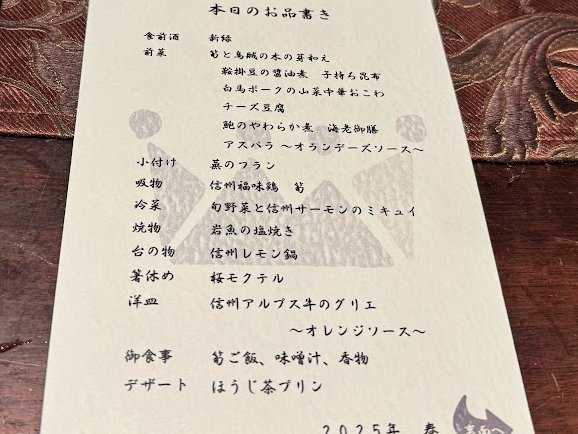 本日のお品書き
食前酒 新緑
前菜 筍と烏賊の木の芽和え
鞍掛豆の醤油煮 子持ち昆布
白馬ポークの山菜中華おこわ
チーズ豆腐
鮑のやわらか煮 海老御膳
アスパラ ～オランデーズソース～
小付け 蕪のフラン
吸物 信州福味鶏 筍
冷菜 旬野菜と信州サーモンのミキュイ
焼物 岩魚の塩焼き
台の物 信州レモン鍋
箸休め 桜モクテル
洋皿 信州アルプス牛のグリエ
～オレンジソース～
御食事 筍ご飯、味噌汁、香物
デザート ほうじ茶プリン
2025年 春
裏面へ